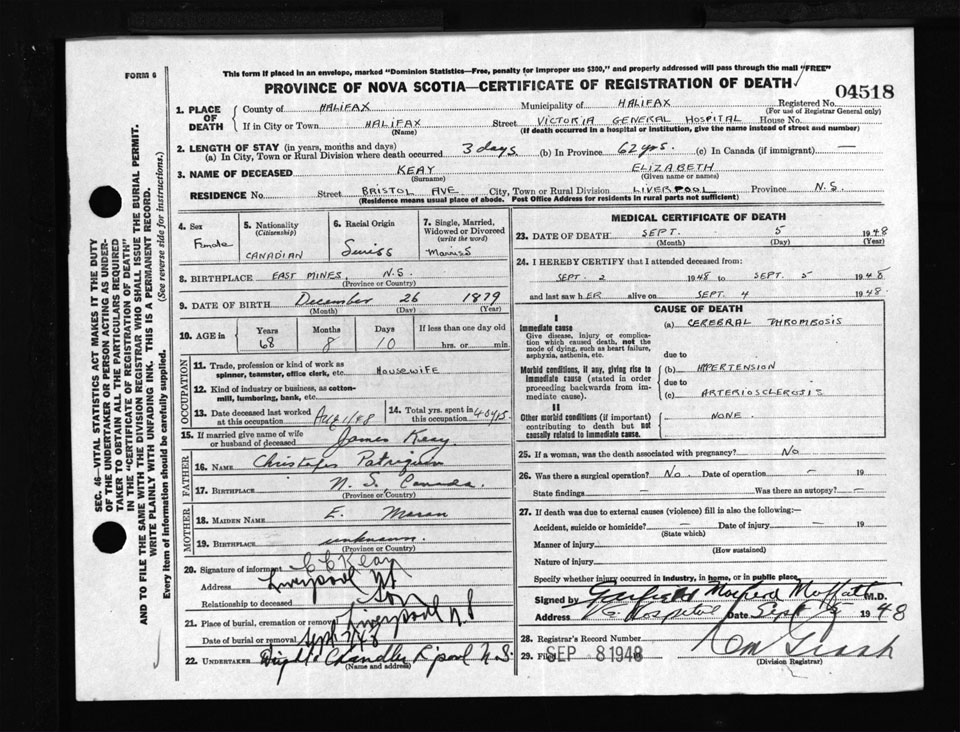 FORM 6
This form if placed in an envelope, marked "Dominion Statistics—Free, penalty for improper use $300," and properly addressed will pass through the mail "FREE"
PROVINCE OF NOVA SCOTIA—CERTIFICATE OF REGISTRATION OF DEATH
04518
1. PLACE OF DEATH
County of HALIFAX Municipality of HALIFAX Registered No.
(For use of Registrar General only)
If in City or Town HALIFAX Street VICTORIA GENERAL HOSPITAL House No.
(Name) (If death occurred in a hospital or institution, give the name instead of street and number)
2. LENGTH OF STAY (in years, months and days)
(a) In City, Town or Rural Division where death occurred 3 days (b) In Province 62 yrs. (c) In Canada (if immigrant) —
3. NAME OF DECEASED KEAY ELIZABETH
(Surname) (Given name or names)
RESIDENCE No. Street BRISTOL AVE. City, Town or Rural Division LIVERPOOL Province N.S.
(Residence means usual place of abode. Post Office Address for residents in rural parts not sufficient)
4. Sex
Female
5. Nationality
(Citizenship)
CANADIAN
6. Racial Origin
Swiss
7. Single, Married, Widowed or Divorced
(write the word)
8. BIRTHPLACE EAST MINES, N.S.
(Province or Country)
9. DATE OF BIRTH December 26 1879
(Month) (Day) (Year)
10. AGE in
Years Months Days If less than one day old
68 8 10 hrs. or min.
OCCUPATION
11. Trade, profession or kind of work as spinner, teamster, office clerk, etc. HOUSEWIFE
12. Kind of industry or business, as cotton-mill, lumbering, bank, etc.
13. Date deceased last worked at this occupation Aug 1/48
14. Total yrs. spent in this occupation 40 yrs
15. If married give name of wife or husband of deceased James Keay
FATHER
16. NAME Christopher
17. BIRTHPLACE N. S. Canada.
(Province or Country)
MOTHER
18. MAIDEN NAME E.
19. BIRTHPLACE unknown.
(Province or Country)
20. Signature of informant C C Keay
Address Liverpool NS
Relationship to deceased Son
21. Place of burial, cremation or removal Liverpool N S
Date of burial or removal Sept 7/48
22. UNDERTAKER Chandler L'pool N.S.
(Name and address)
MEDICAL CERTIFICATE OF DEATH
23. DATE OF DEATH SEPT. 5 1948
(Month) (Day) (Year)
24. I HEREBY CERTIFY that I attended deceased from:
SEPT. 2 1948 to SEPT. 5 1948
and last saw hER alive on SEPT. 4 1948.
CAUSE OF DEATH
I
Immediate cause
Give disease, injury or complication which caused death, not the mode of dying, such as heart failure, asphyxia, asthenia, etc.
(a) CEREBRAL THROMBOSIS
due to
Morbid conditions, if any, giving rise to immediate cause (stated in order proceeding backwards from immediate cause).
(b) HYPERTENSION
due to
(c) ARTERIOSCLEROSIS
II
Other morbid conditions (if important) contributing to death but not causally related to immediate cause.
NONE.
25. If a woman, was the death associated with pregnancy? No
26. Was there a surgical operation? No. Date of operation — 19
State findings — Was there an autopsy? —
27. If death was due to external causes (violence) fill in also the following:—
Accident, suicide or homicide? — Date of injury — 19
(State which)
Manner of injury
(How sustained)
Nature of injury
Specify whether injury occurred in industry, in home, or in public place.
Signed by Moffatt M.D.
Address V G Hospital Date Sept 1948
28. Registrar's Record Number
29. Filed SEP 8 1948
(Division Registrar)
SEC. 46—VITAL STATISTICS ACT MAKES IT THE DUTY
OF THE UNDERTAKER OR PERSON ACTING AS UNDER-
TAKER TO OBTAIN ALL THE PARTICULARS REQUIRED
IN THE "CERTIFICATE OF REGISTRATION OF DEATH"
AND TO FILE THE SAME WITH THE DIVISION REGISTRAR WHO SHALL ISSUE THE BURIAL PERMIT.
WRITE PLAINLY WITH UNFADING INK. THIS IS A PERMANENT RECORD.
Every item of information should be carefully supplied. (See reverse side for instructions.)